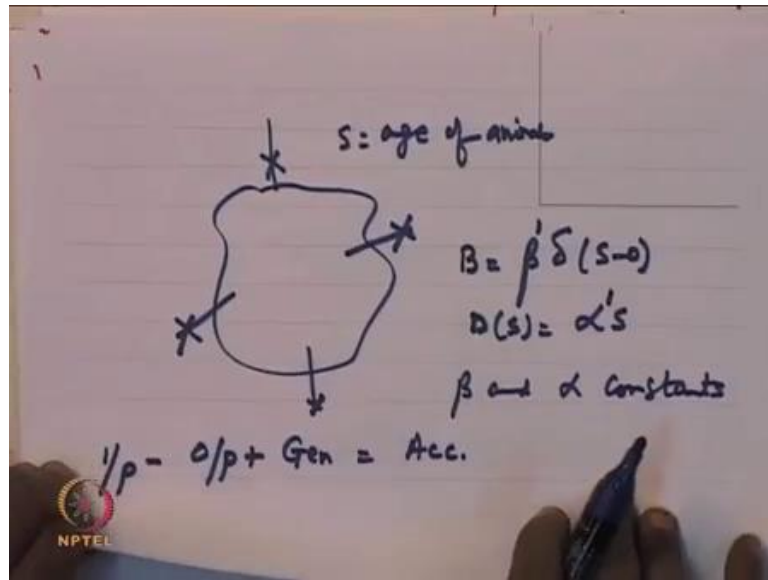 S = age of animal
B = β' δ(S-0)
D(S) = α'S
β and α constants
I/p - O/p + Gen = Acc.
NPTEL